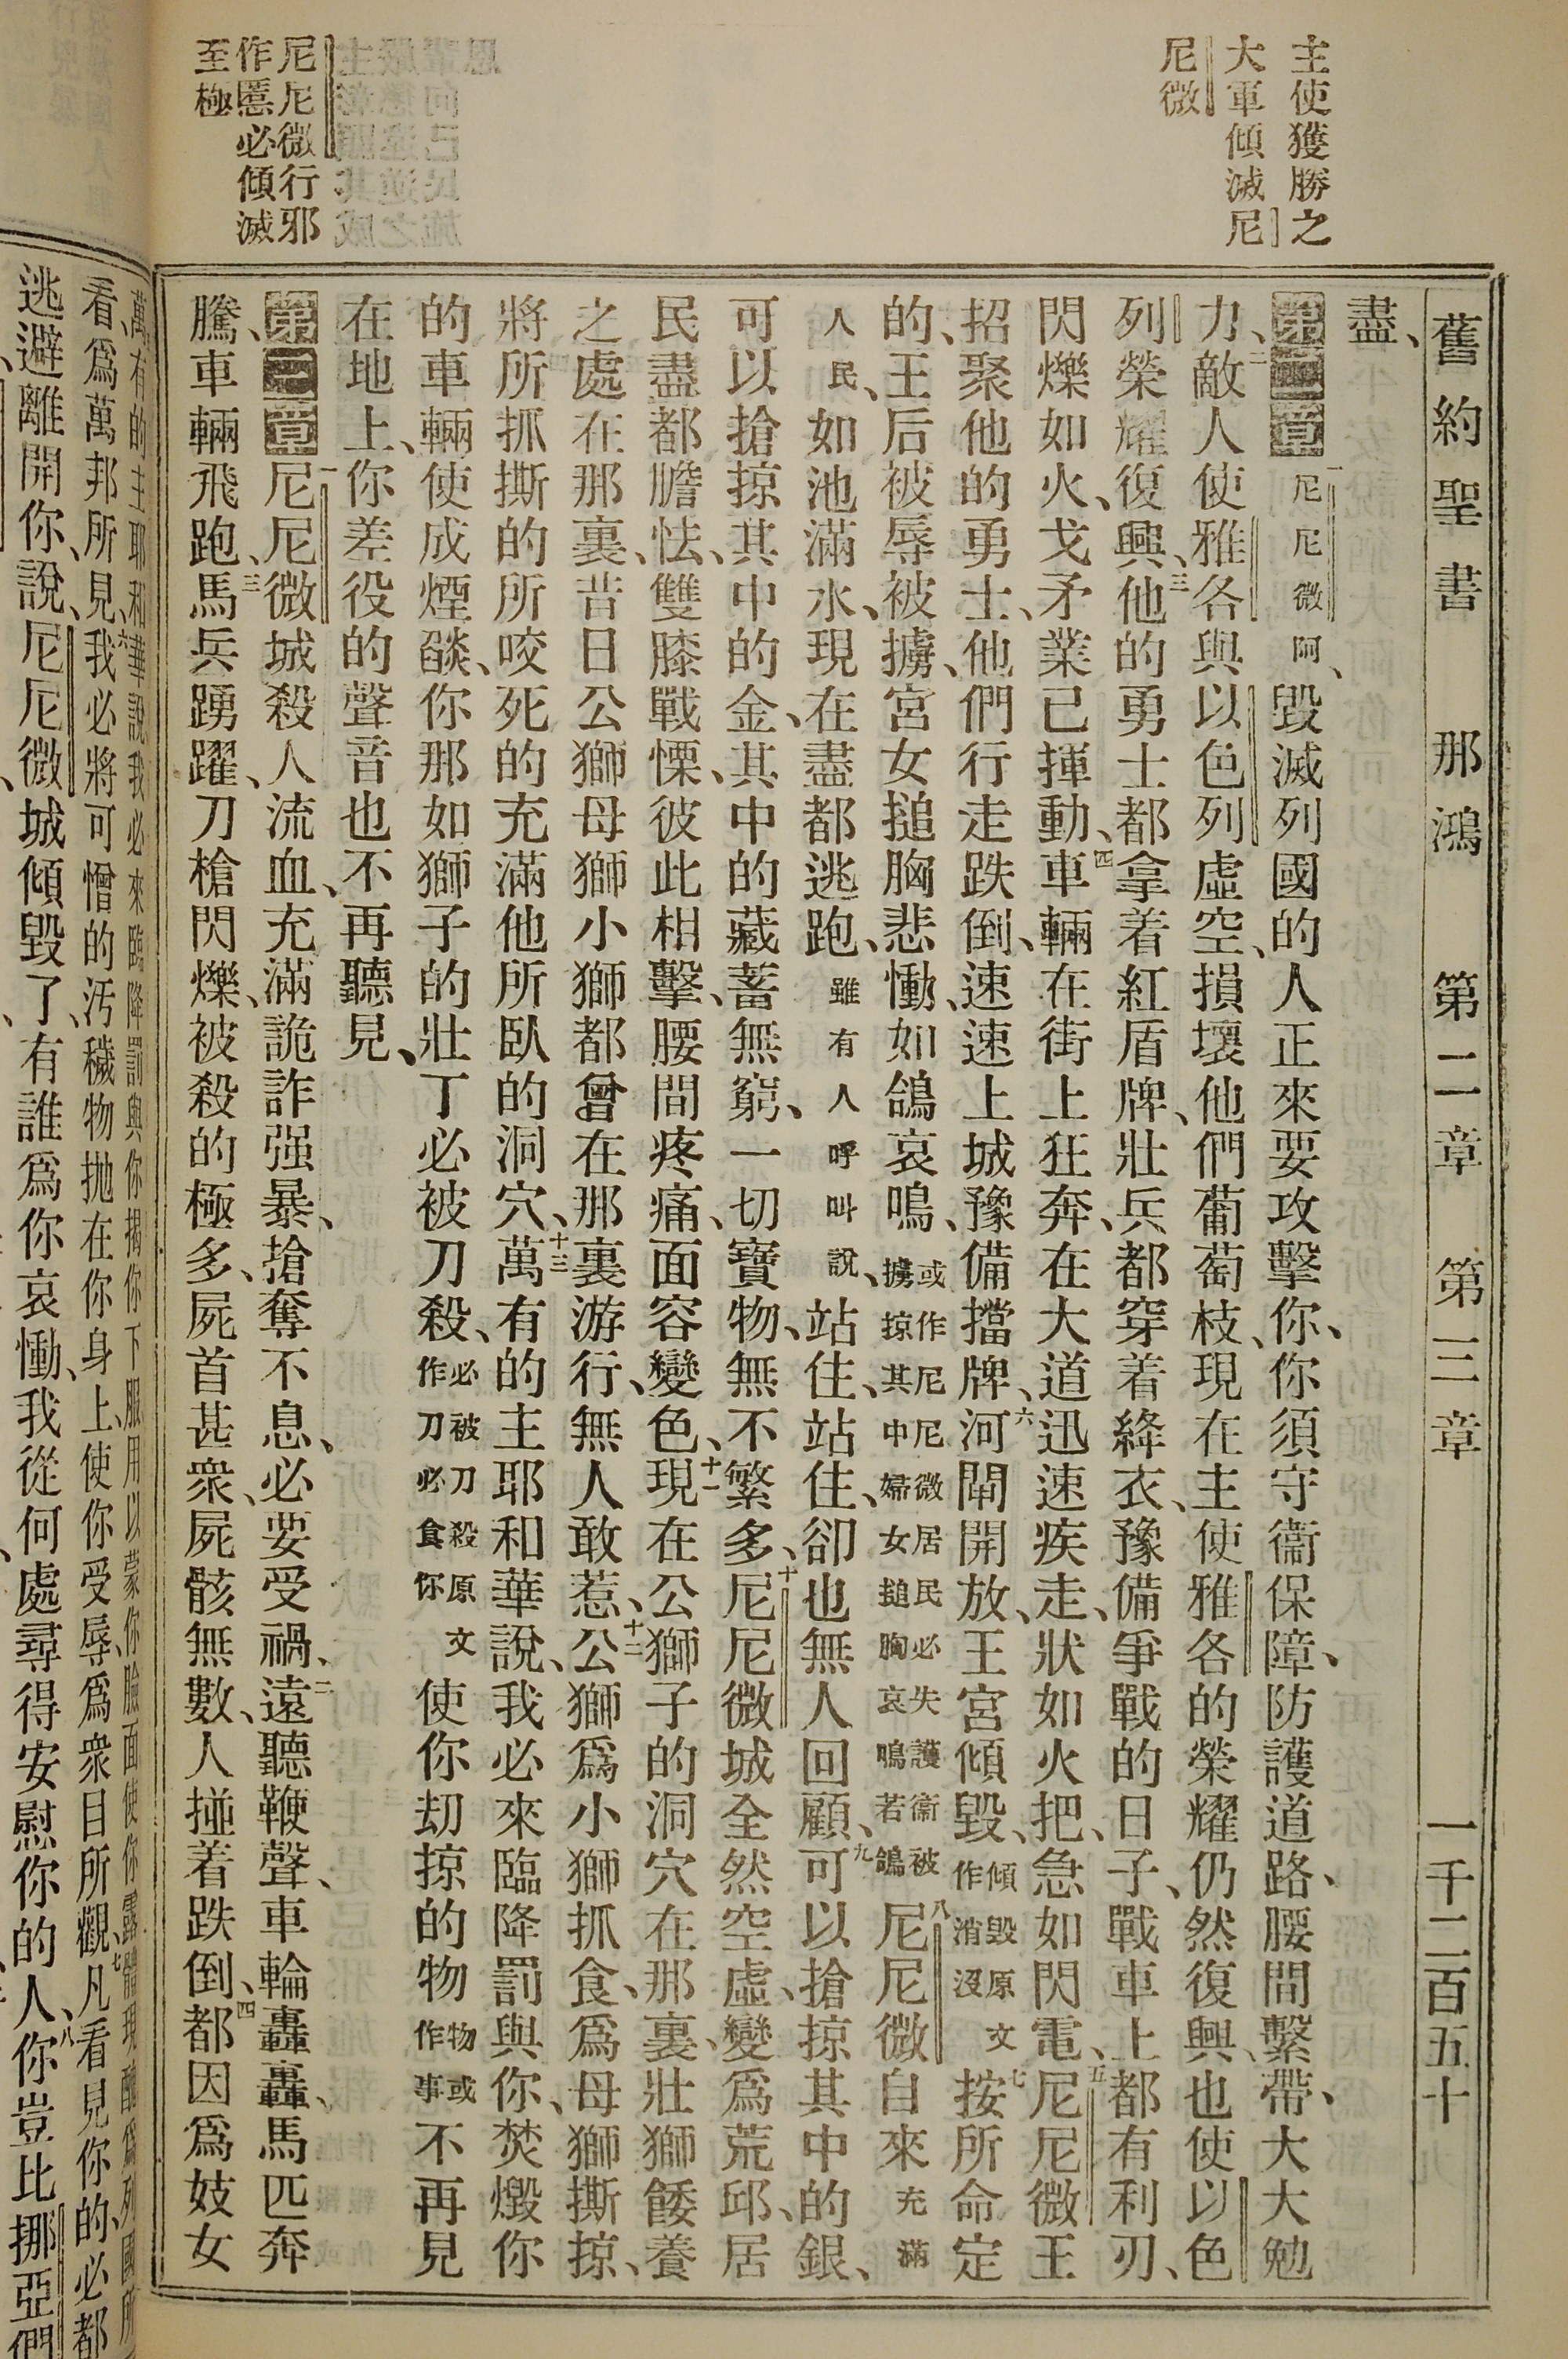 舊約聖書 那鴻 第二章 第三章 一千二百五十
主使獲勝之
大軍傾滅尼
尼微
尼尼微行邪
作慝必傾滅
至極
盡、
第二章 一尼尼微阿、毀滅列國的人正來要攻擊你、你須守衞保障、防護道路、腰間繫帶、大大勉
力、二敵人使雅各與以色列虛空、損壞他們葡萄枝、現在主使雅各的榮耀仍然復興、也使以色
列榮耀復興、三他的勇士都拿着紅盾牌、壯兵都穿着絳衣、豫備爭戰的日子、戰車上都有利刃、
閃爍如火、戈矛業已揮動、四車輛在街上狂奔、在大道迅速疾走、狀如火把、急如閃電、五尼尼微王
招聚他的勇士、他們行走跌倒、速速上城豫備擋牌、六河閘開放、王宮傾毀、傾毀原文作消沒七按所命定
的、王后被辱被擄、宮女搥胸悲慟、如鴿哀鳴、或作尼尼微居民必失護衞被擄掠其中婦女搥胸哀鳴若鴿八尼尼微自來充滿
人民、如池滿水、現在盡都逃跑、雖有人呼叫說、站住、站住、卻也無人回顧、九可以搶掠其中的銀、
可以搶掠其中的金、其中的藏蓄無窮、一切寶物、無不繁多、十尼尼微城全然空虛、變爲荒邱、居
民盡都膽怯、雙膝戰慄、彼此相擊、腰間疼痛、面容變色、十一現在公獅子的洞穴在那裏、壯獅餧養
之處在那裏、昔日公獅母獅小獅都曾在那裏游行、無人敢惹、十二公獅爲小獅抓食、爲母獅撕掠、
將所抓撕的所咬死的充滿他所臥的洞穴、十三萬有的主耶和華說、我必來臨降罰與你、焚燬你
的車輛使成煙燄、你那如獅子的壯丁必被刀殺、必被刀殺原文作刀必食你使你刼掠的物物或作事不再見
在地上、你差役的聲音也不再聽見、
第三章 一尼尼微城殺人流血、充滿詭詐强暴、搶奪不息、必要受禍、二遠聽鞭聲、車輪轟轟、馬匹奔
騰、車輛飛跑、三馬兵踴躍、刀槍閃爍、被殺的極多、屍首甚衆、屍骸無數、人掽着跌倒、四都因爲妓女
萬有的主耶和華說我必來臨降罰與你揭你下服用以蒙你臉面使你露體現醜爲列國所
看、爲萬邦所見、六我必將可憎的汚穢物抛在你身上、使你受辱、爲衆目所觀、七凡看見你的、必都
逃避離開你、說、尼尼微城傾毀了、有誰爲你哀慟、我從何處尋得安慰你的人、八你豈比挪亞們